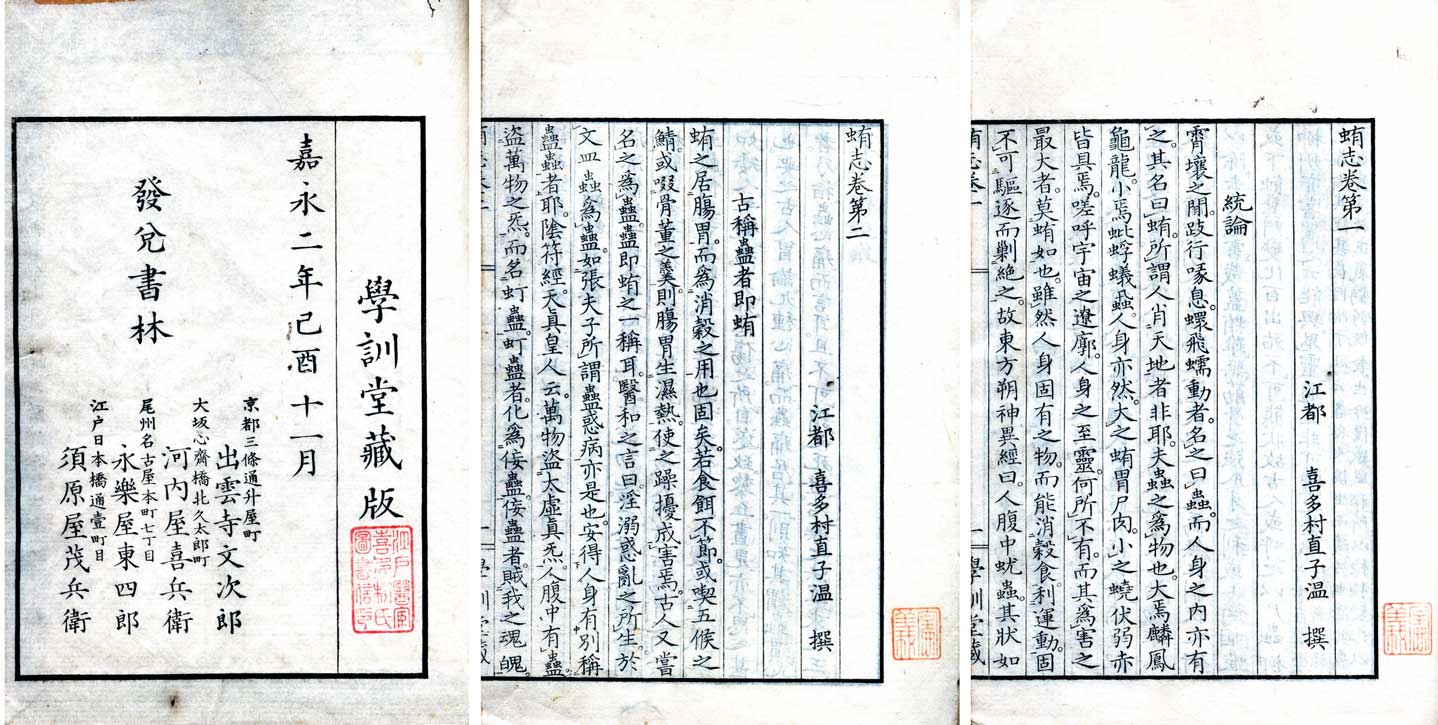 蛕志卷第一
江都　喜多村直子温　撰
統論
霄壤之間。跂行喙息。蠉飛蠕動者。名之曰蟲。而人身之内亦有
之。其名曰蛕。所謂人肖天地者非耶。夫蟲之爲物也。大焉麟鳳
龜龍。小焉蚍蜉蟻蝨。人身亦然。大之蛕胃尸肉。小之蟯伏弱赤
皆具焉。嗟呼宇宙之遼廓。人身之至靈。何所不有。而其爲害之
最大者。莫蛕如也。雖然人身固有之物。而能消穀食。利運動。固
不可驅逐而剿絶之。故東方朔神異經曰。人腹中蚘蟲。其狀如
學訓堂藏
蛕志卷第二
江都　喜多村直子温　撰
古稱蠱者即蛕
蛕之居腸胃。而爲消穀之用也固矣。若食餌不節。或喫五候之
鯖。或啜骨董之羹。則腸胃生濕熱。使之躁擾成害焉。古人又嘗
名之爲蠱。蠱即蛕之一稱耳。醫和之言曰。淫溺惑亂之所生。於
文皿蟲爲蠱。如張夫子所謂蠱惑病亦是也。安得人身有別稱
蠱蟲者耶。陰符經。天眞皇人云。萬物盗太虚眞炁。人腹中有蠱。
盗萬物之炁。而名虰蠱。虰蠱者。化爲倿蠱。倿蠱者。賊我之魂魄
學訓堂藏
學訓堂藏版
嘉永二年己酉十一月
發兌書林
京都三條通升屋町
出雲寺文次郎
大坂心齋橋北久太郎町
河内屋喜兵衛
尾州名古屋本町七丁目
永樂屋東四郎
江户日本橋通壹町目
須原屋茂兵衛